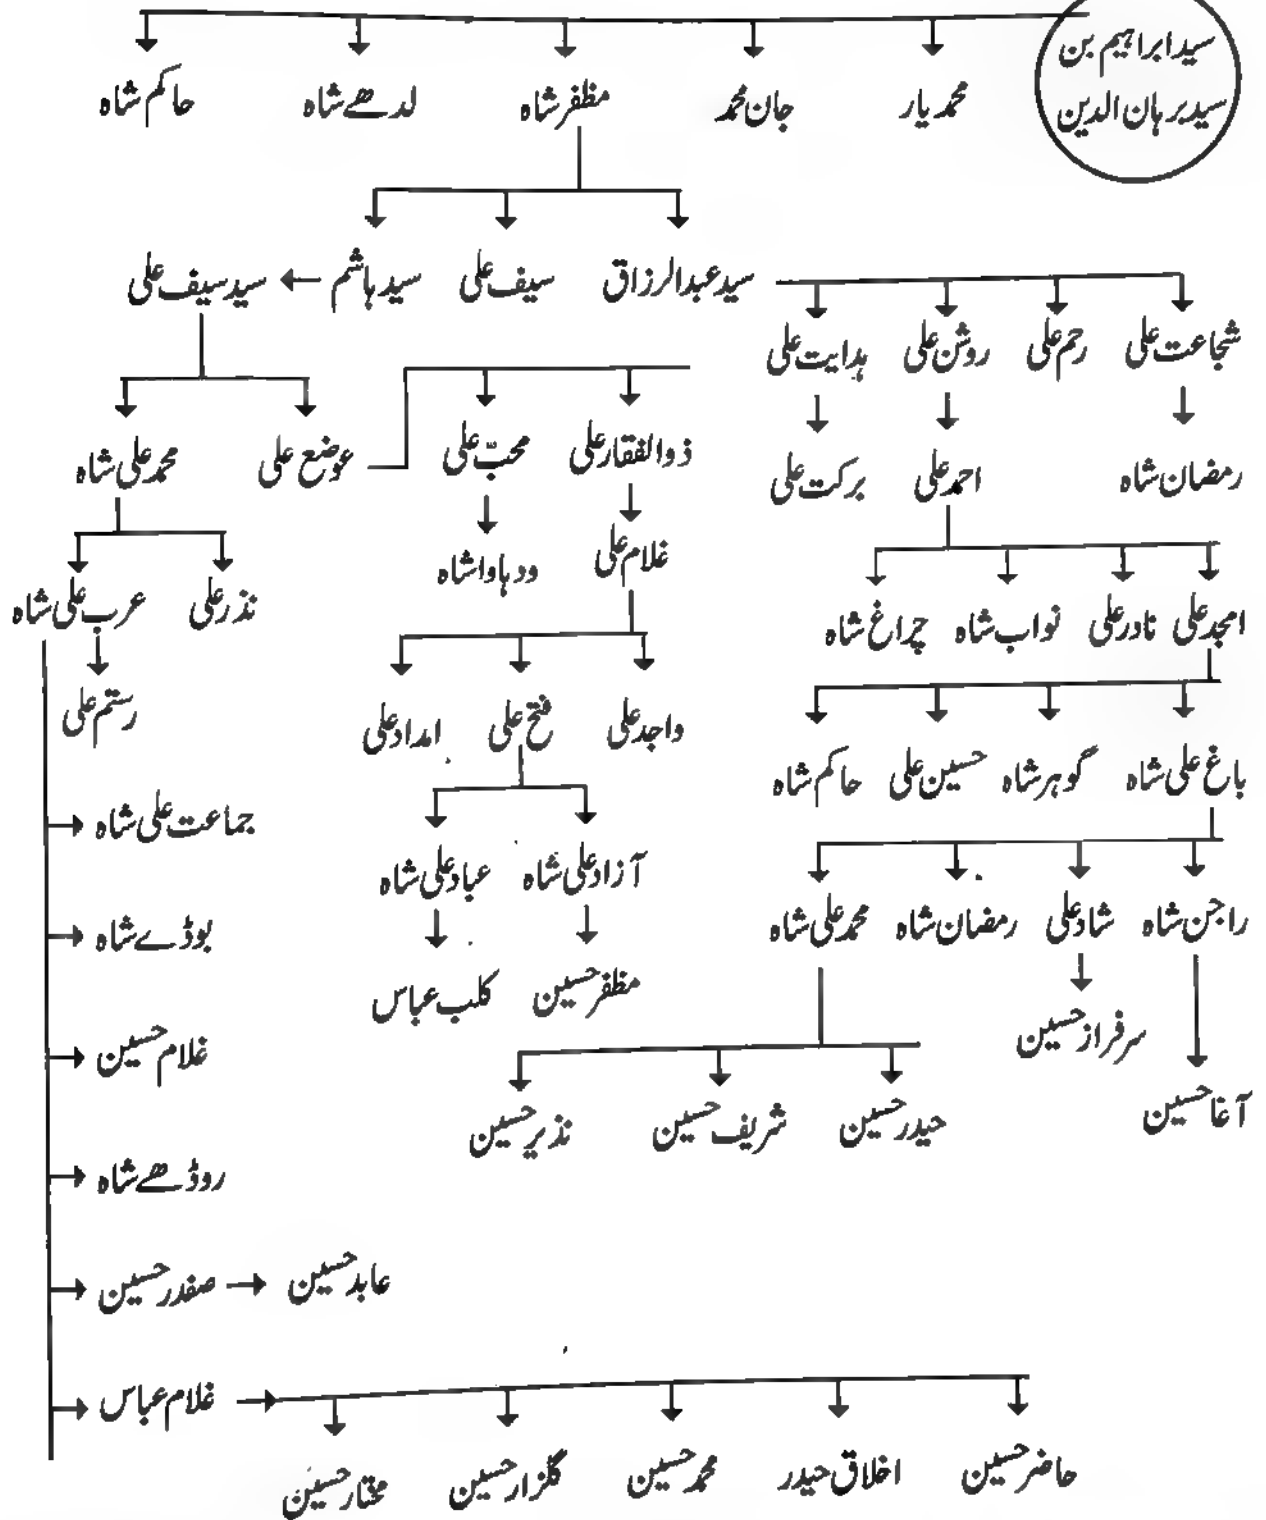 سید ابراہیم بن
سید برہان الدین
محمد یار جان محمد مظفر شاہ لدھے شاہ حاکم شاہ
سید عبدالرزاق سیف علی سید ہاشم سید سیف علی
شجاعت علی رحم علی روشن علی ہدایت علی
ذوالفقار علی محبّ علی عوضع علی محمد علی شاہ
رمضان شاہ احمد علی برکت علی
غلام علی ودہاوا شاہ
نذر علی عرب علی شاہ
امجد علی نادر علی نواب شاہ چراغ شاہ
واجد علی فتح علی امداد علی رستم علی
باغ علی شاہ گوہر شاہ حسین علی حاکم شاہ
جماعت علی شاہ
آزاد علی شاہ عباد علی شاہ
راجن شاہ شاد علی رمضان شاہ محمد علی شاہ
بوڈے شاہ
مظفر حسین کلب عباس
سرفراز حسین
غلام حسین
آغا حسین
حیدر حسین شریف حسین نذیر حسین
روڈھے شاہ
صفدر حسین عابد حسین
غلام عباس
حاضر حسین اخلاق حیدر محمد حسین گلزار حسین مختار حسین